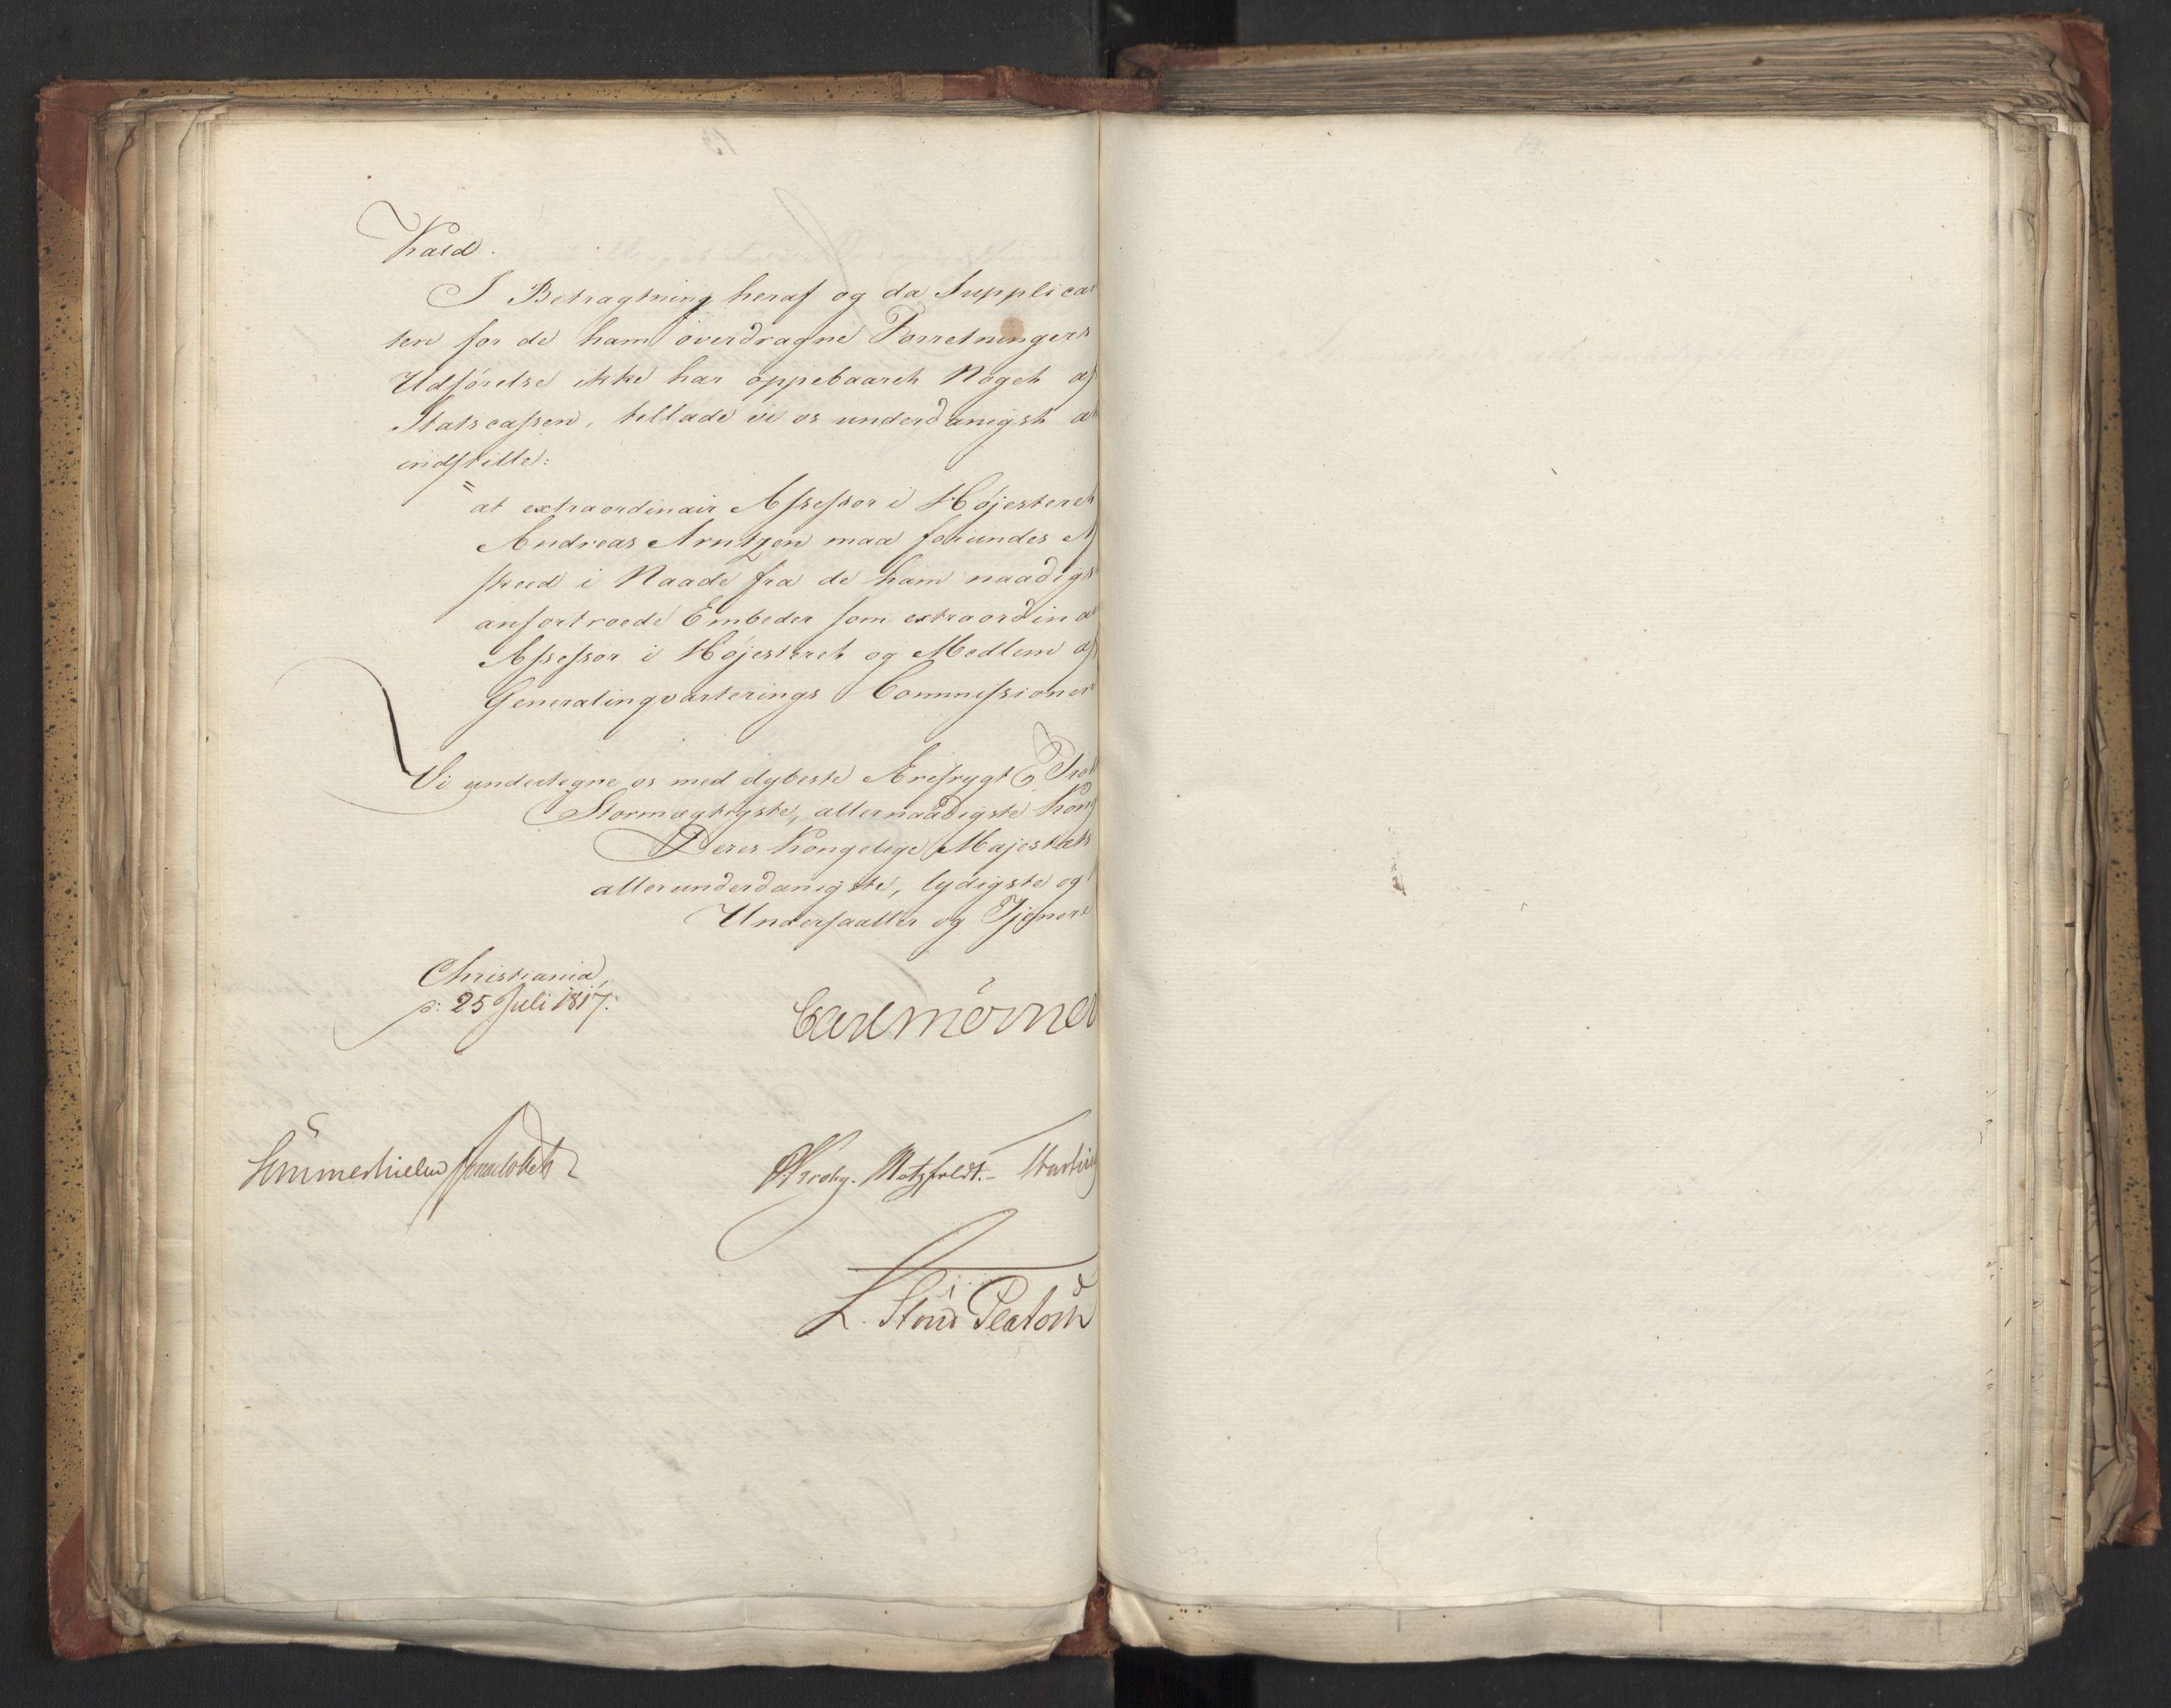 Kald.
I Betragtning heraf og da Supplican
ten for de ham overdragne Forretningers
Udførelse ikke har oppebaaret Noget af
Statscassen, tillade vi os underdanigst at
indstille:
"at extraordinair Assessor i Højesteret
Andreas Arntzen maa forundes Af
skeed i Naade fra de ham naadigst
anfortroede Embeder som extraordinair
Assessor i Højesteret og Medlem af
Generalinqvarterings Commissionen
Vi undertegne os med dybeste Ærefrygt
Stormægtigste, allernaadigste Konge
Deres Kongelige Majestæts
allerunderdanigste, lydigste og
Undersaatter og Tjenere
Christiania
d: 25 Juli 1817.
Carl Mörner
Sommerhielm
Krohg. Motzfeldt.
L. Stoud Platou